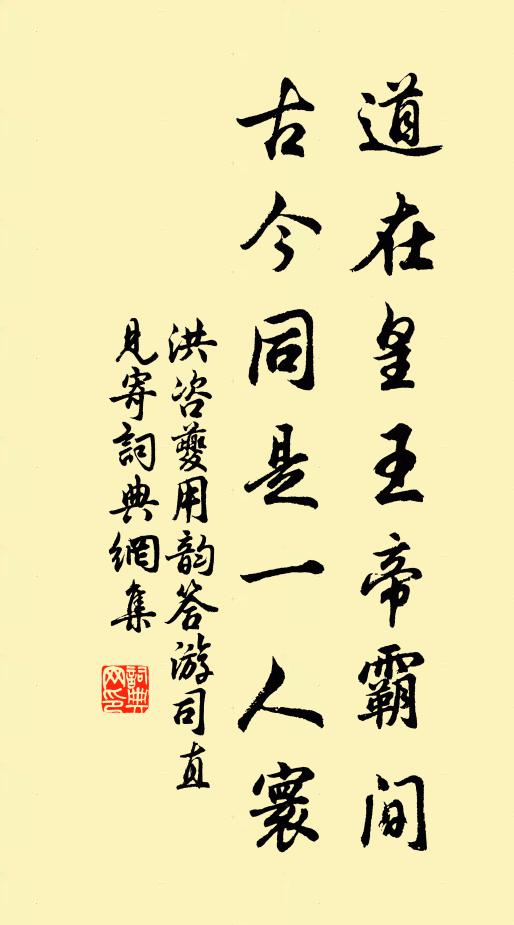 道在皇王帝霸間
古今同是一人寰
洪咨夔用韵答游司直
見寄詞典網集
詞典网印